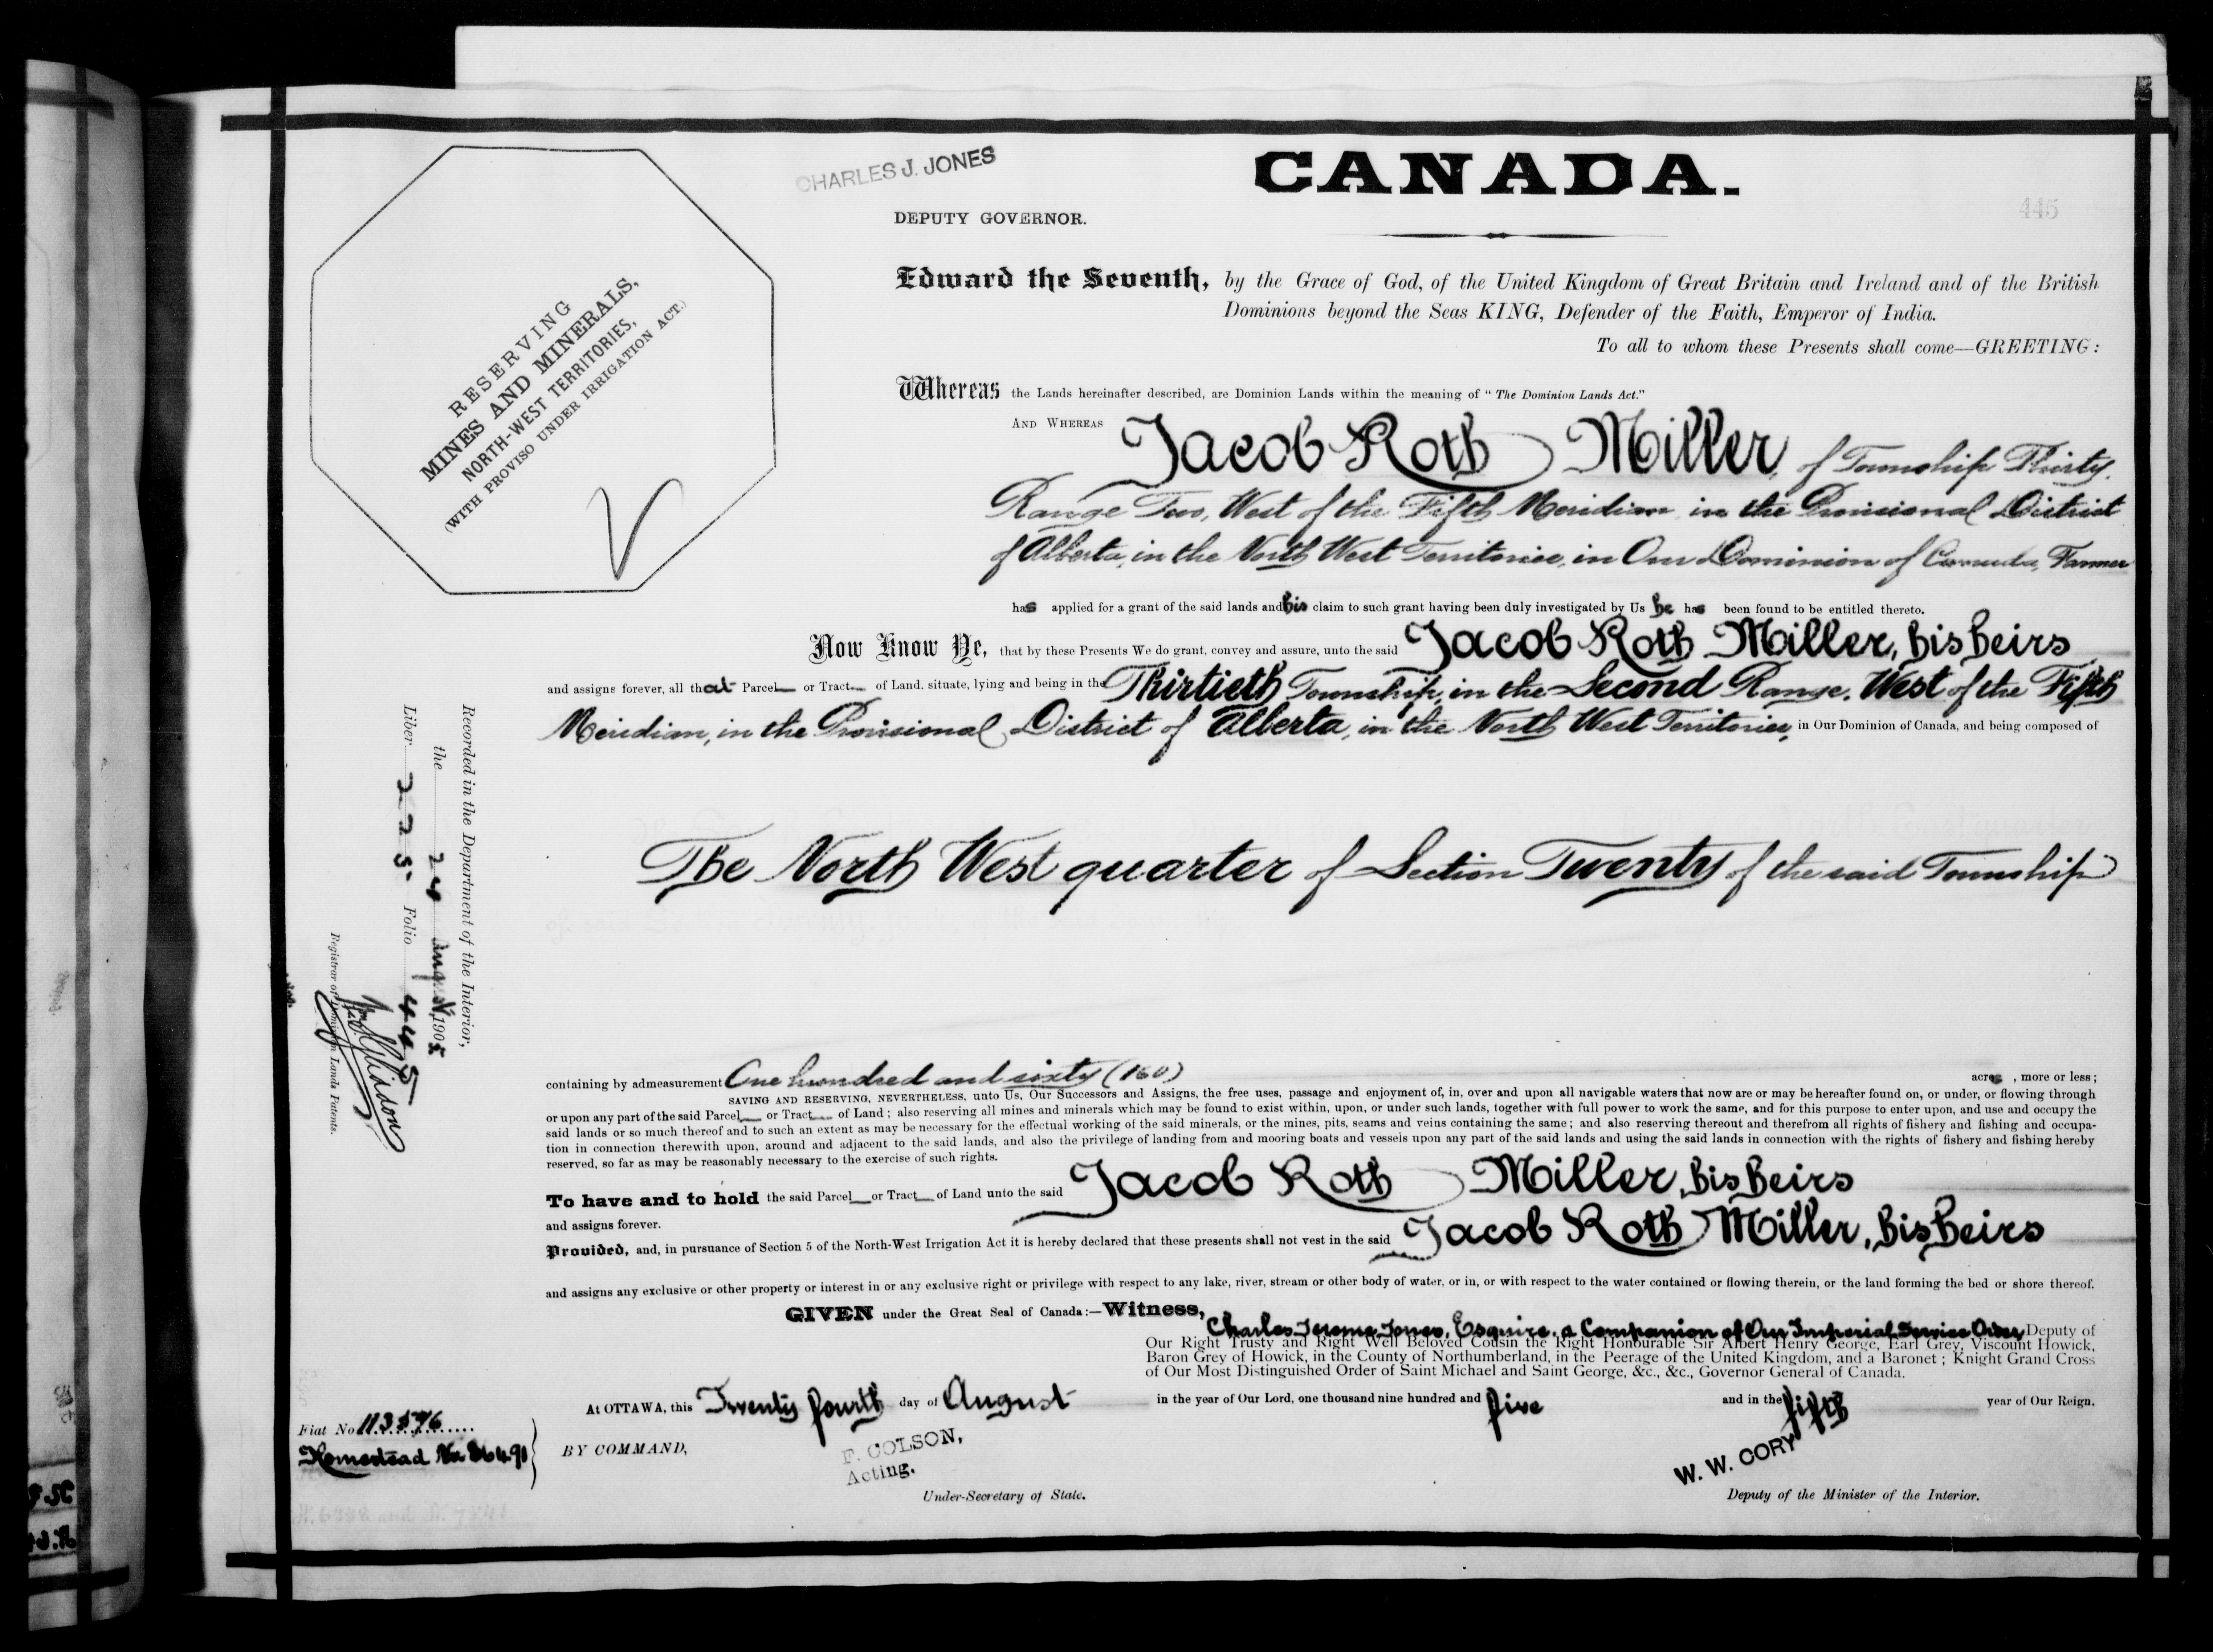 CHARLES J. JONES
CANADA.
DEPUTY GOVERNOR.
445
RESERVING
MINES AND MINERALS,
NORTH-WEST TERRITORIES,
(WITH PROVISO UNDER IRRIGATION ACT.)
Edward the Seventh, by the Grace of God, of the United Kingdom of Great Britain and Ireland and of the British
Dominions beyond the Seas KING, Defender of the Faith, Emperor of India.
To all to whom these Presents shall come—GREETING:
Whereas the Lands hereinafter described, are Dominion Lands within the meaning of "The Dominion Lands Act."
AND WHEREAS Jacob Roth Miller, of Township Thirty,
Range Two, West of the Fifth Meridian, in the Provisional District
of Alberta, in the North West Territories, in Our Dominion of Canada, Farmer
has applied for a grant of the said lands and his claim to such grant having been duly investigated by Us he has been found to be entitled thereto.
Now Know Ye, that by these Presents We do grant, convey and assure, unto the said Jacob Roth Miller, his heirs
and assigns forever, all that Parcel or Tract of Land, situate, lying and being in the Thirtieth Township, in the Second Range, West of the Fifth
Meridian, in the Provisional District of Alberta, in the North West Territories, in Our Dominion of Canada, and being composed of
The North West quarter of Section Twenty of the said Township
Recorded in the Department of the Interior,
the 24 August, 1905
Liber 225 Folio 445
Registrar of Dominion Lands Patents.
containing by admeasurement One hundred and sixty (160) acres, more or less;
SAVING AND RESERVING, NEVERTHELESS, unto Us, Our Successors and Assigns, the free uses, passage and enjoyment of, in, over and upon all navigable waters that now are or may be hereafter found on, or under, or flowing through
or upon any part of the said Parcel or Tract of Land; also reserving all mines and minerals which may be found to exist within, upon, or under such lands, together with full power to work the same, and for this purpose to enter upon, and use and occupy the
said lands or so much thereof and to such an extent as may be necessary for the effectual working of the said minerals, or the mines, pits, seams and veins containing the same; and also reserving thereout and therefrom all rights of fishery and fishing and occupa-
tion in connection therewith upon, around and adjacent to the said lands, and also the privilege of landing from and mooring boats and vessels upon any part of the said lands and using the said lands in connection with the rights of fishery and fishing hereby
reserved, so far as may be reasonably necessary to the exercise of such rights.
To have and to hold the said Parcel or Tract of Land unto the said Jacob Roth Miller, his heirs
and assigns forever.
Provided, and, in pursuance of Section 5 of the North-West Irrigation Act it is hereby declared that these presents shall not vest in the said Jacob Roth Miller, his heirs
and assigns any exclusive or other property or interest in or any exclusive right or privilege with respect to any lake, river, stream or other body of water, or in, or with respect to the water contained or flowing therein, or the land forming the bed or shore thereof.
GIVEN under the Great Seal of Canada:—Witness,
Charles Jerome Jones, Esquire, a Companion of Our Imperial Service Order Deputy of
Our Right Trusty and Right Well Beloved Cousin the Right Honourable Sir Albert Henry George, Earl Grey, Viscount Howick,
Baron Grey of Howick, in the County of Northumberland, in the Peerage of the United Kingdom, and a Baronet; Knight Grand Cross
of Our Most Distinguished Order of Saint Michael and Saint George, &c., &c., Governor General of Canada.
At OTTAWA, this Twenty fourth day of August in the year of Our Lord, one thousand nine hundred and five and in the fifth year of Our Reign.
Fiat No 113576
Homestead No 86491
BY COMMAND,
F. COLSON,
Acting.
Under-Secretary of State.
W. W. CORY
Deputy of the Minister of the Interior.